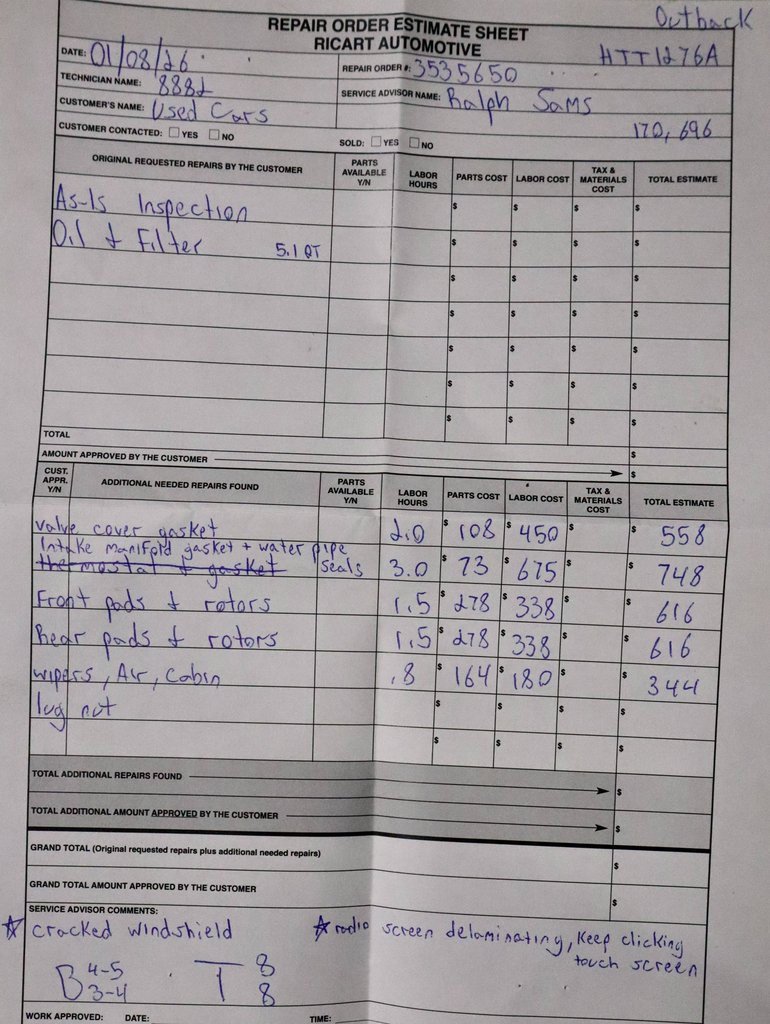 Outback
REPAIR ORDER ESTIMATE SHEET
RICART AUTOMOTIVE
HTT1276A
DATE: 01/08/26
REPAIR ORDER #: 3535650
TECHNICIAN NAME: 8882
SERVICE ADVISOR NAME: Ralph Sams
CUSTOMER'S NAME: Used Cars
170,696
CUSTOMER CONTACTED: ☐ YES ☐ NO SOLD: ☐ YES ☐ NO
ORIGINAL REQUESTED REPAIRS BY THE CUSTOMER PARTS AVAILABLE Y/N LABOR HOURS PARTS COST LABOR COST TAX & MATERIALS COST TOTAL ESTIMATE
As-Is Inspection $ $ $ $
Oil & Filter 5.1 QT $ $ $ $
$ $ $ $
$ $ $ $
$ $ $ $
$ $ $ $
$ $ $ $
TOTAL $
AMOUNT APPROVED BY THE CUSTOMER $
CUST. APPR. Y/N ADDITIONAL NEEDED REPAIRS FOUND PARTS AVAILABLE Y/N LABOR HOURS PARTS COST LABOR COST TAX & MATERIALS COST TOTAL ESTIMATE
valve cover gasket 2.0 $ 108 $ 450 $ $ 558
Intake manifold gasket + water pipe
thermostat & gasket seals 3.0 $ 73 $ 675 $ $ 748
Front pads & rotors 1.5 $ 278 $ 338 $ $ 616
Rear pads & rotors 1.5 $ 278 $ 338 $ $ 616
wipers, Air, Cabin .8 $ 164 $ 180 $ $ 344
lug nut $ $ $ $
$ $ $ $
TOTAL ADDITIONAL REPAIRS FOUND $
TOTAL ADDITIONAL AMOUNT APPROVED BY THE CUSTOMER $
GRAND TOTAL (Original requested repairs plus additional needed repairs) $
GRAND TOTAL AMOUNT APPROVED BY THE CUSTOMER $
SERVICE ADVISOR COMMENTS:
☆ cracked windshield
☆ radio screen delaminating, keep clicking
touch screen
B 4-5
3-4
T 8
8
WORK APPROVED: DATE: TIME: